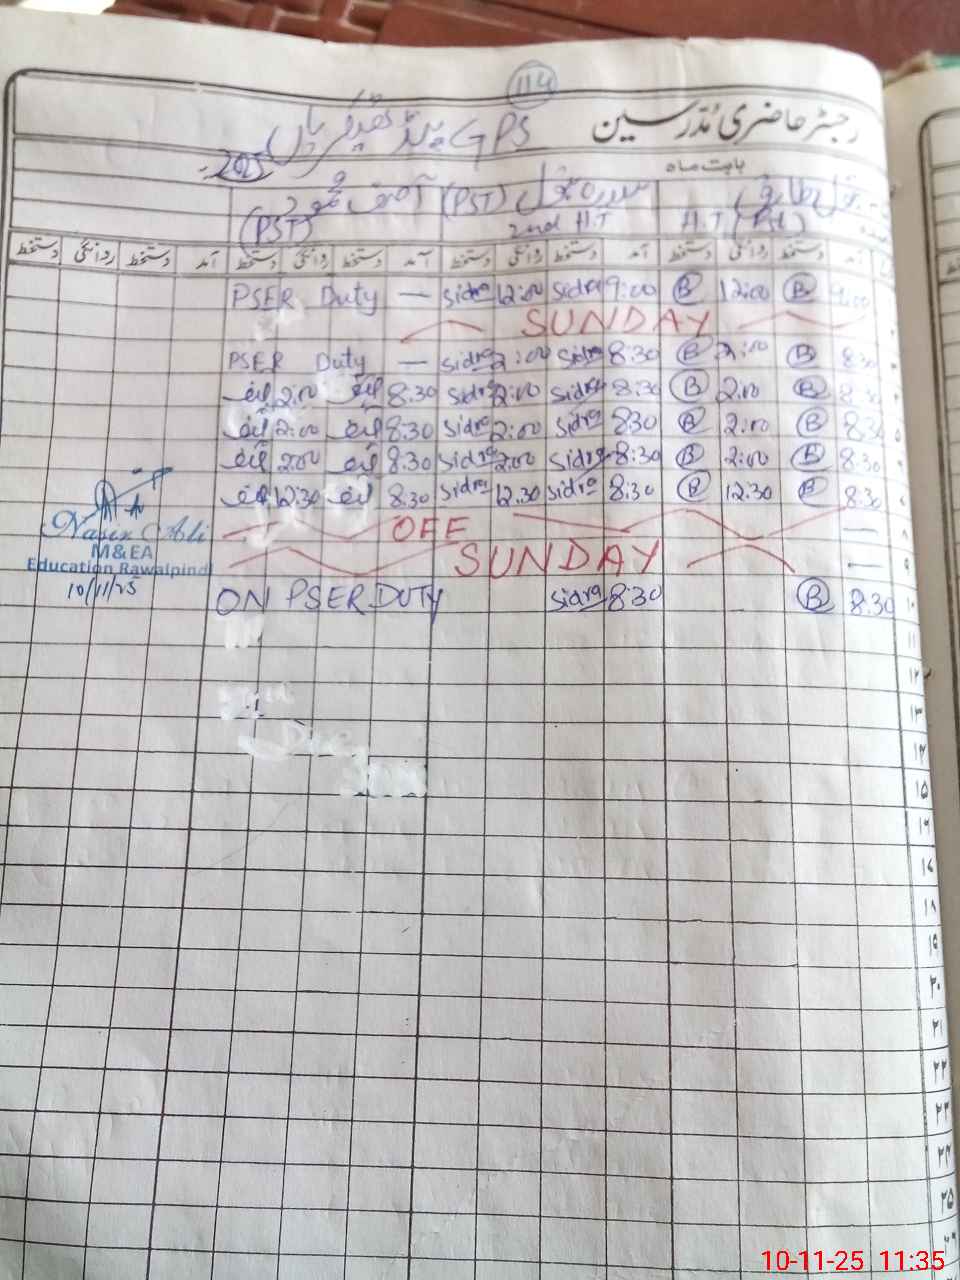 114
رجسٹر حاضری مُدرسین
GPS پنڈ
بابت ماہ
2025
(PST) (PST) H.T (PST)
2nd H.T
دستخط روانگی دستخط آمد دستخط روانگی دستخط آمد دستخط روانگی دستخط آمد دستخط روانگی دستخط آمد
PSER Duty — Sidra 12:00 Sidra 9:00 B 12:00 B 9:00
SUNDAY
PSER Duty — Sidra 2:00 Sidra 8:30 B 2:00 B 8:30
2:00 8:30 Sidra 2:00 Sidra 8:30 B 2:00 B 8:30
2:00 8:30 Sidra 2:00 Sidra 8:30 B 2:00 B 8:30
2:00 8:30 Sidra 2:00 Sidra 8:30 B 2:00 B 8:30
12:30 8:30 Sidra 12:30 Sidra 8:30 B 12:30 B 8:30
OFF — ۸
SUNDAY — ۹
ON PSER DUTY Sidra 8:30 B 8:30 ۱۰
Nasir Ali
M&EA
Education Rawalpindi
10/11/25
۱۱
۱۲
۱۳
۱۴
۱۵
۱۶
۱۷
۱۸
۱۹
۲۰
۲۱
۲۲
۲۳
۲۴
۲۵
10-11-25 11:35